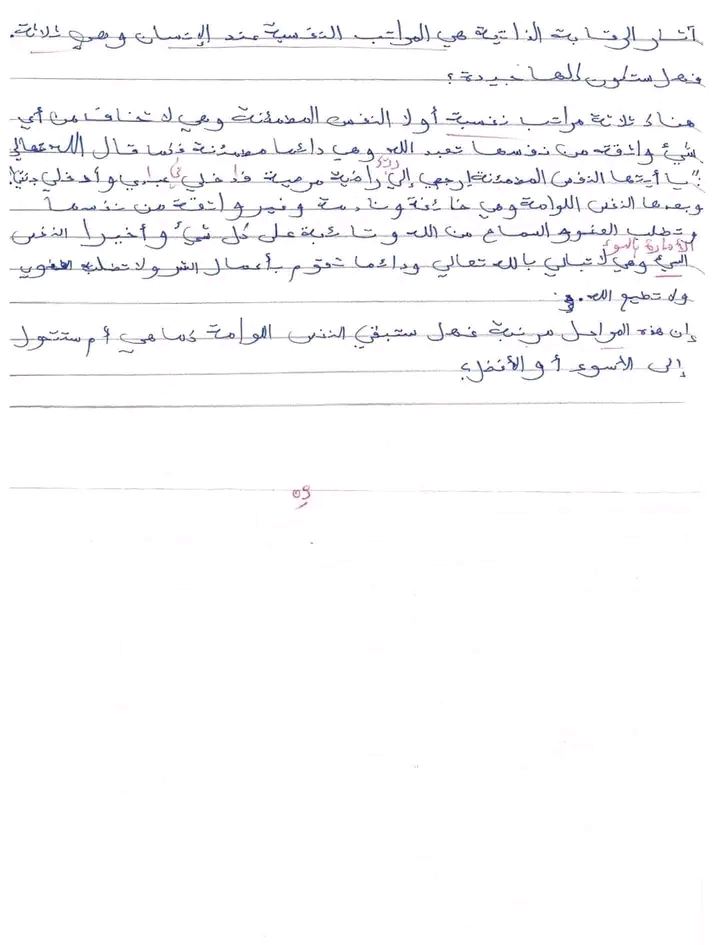 آثار الرقابة الذاتية هي المراتب النفسية عند الإنسان وهي ثلاثة.
فهل ستكون كلها جيدة؟
هناك ثلاثة مراتب نفسية أولا النفس المطمئنة وهي لا تخاف من أي
شيء واثقة من نفسها تعبد الله وهي دائما مطمئنة فكما قال الله تعالى
:"يا أيتها النفس المطمئنة ارجعي إلى ربك راضية مرضية فادخلي في عبادي وأدخلي جنتي".
وبعدها النفس اللوامة وهي خائفة ونادمة وغير واثقة من نفسها
وتطلب العفو و السماح من الله و تائبة على كل شيء و أخيرا النفس
الأمارة بالسوء
السيئ وهي لا تبالي بالله تعالى ودائما تقوم بأعمال الشر ولا تطلب العفو
ولا تطيع الله.
إن هذه المراحل مرتبة فهل ستبقى النفس اللوامة كما هي أم ستتحول
إلى الأسوء أو الأفضل؟
05